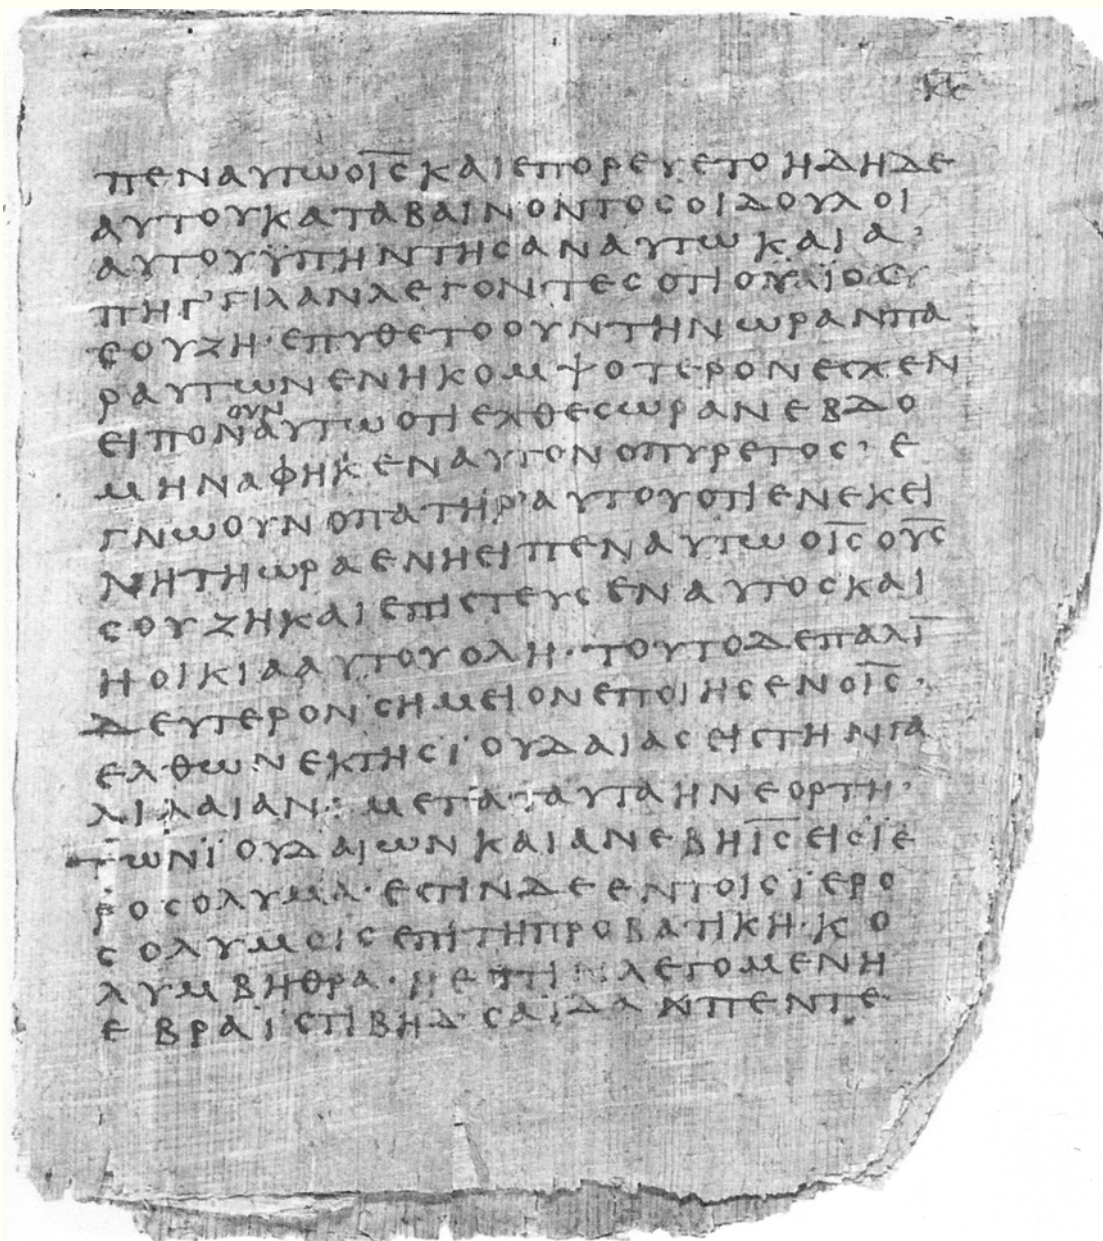 κϛ
πεναυτωοι̅ς̅καιεπορευετοηδηδε
αυτουκαταβαινοντοςοιδουλοι
αυτουϋπηντησαναυτωκαια·
πηγ’γιλανλεγοντεςοτιο
σουζη·επυθετοουντηνωρανπα
ραυτωνενηκομψοτερονεσχεν
ειπον`ουν´αυτωοτιεχθεςωρανεβδο
μηναφηκεναυτονοπυρετος·ε
γνωουνοπατηρ’αυτουοτιενεκει
νητηωραενηειπεναυτωοι̅ς̅ου̅ς̅
σουζηκαιεπιστευσεναυτοςκαι
ηοικιααυτουολη·τουτοδεπαλι̅
δευτερονσημειονεποιησενοι̅ς̅·
ελθωνεκτηςϊουδαιαςειςτηνγα
λιλαιαν:μεταταυταηνεορτη·
τωνϊουδαιωνκαιανεβηι̅ς̅ειςϊε
ροσολυμα·εστινδεεντοιςϊερο
σολυμοιςεπιτηπροβατικη·κο
λυμβηθρα·ηεστινλεγομενη
εβραϊστιβηδ’σαϊδαν̅πεντε·